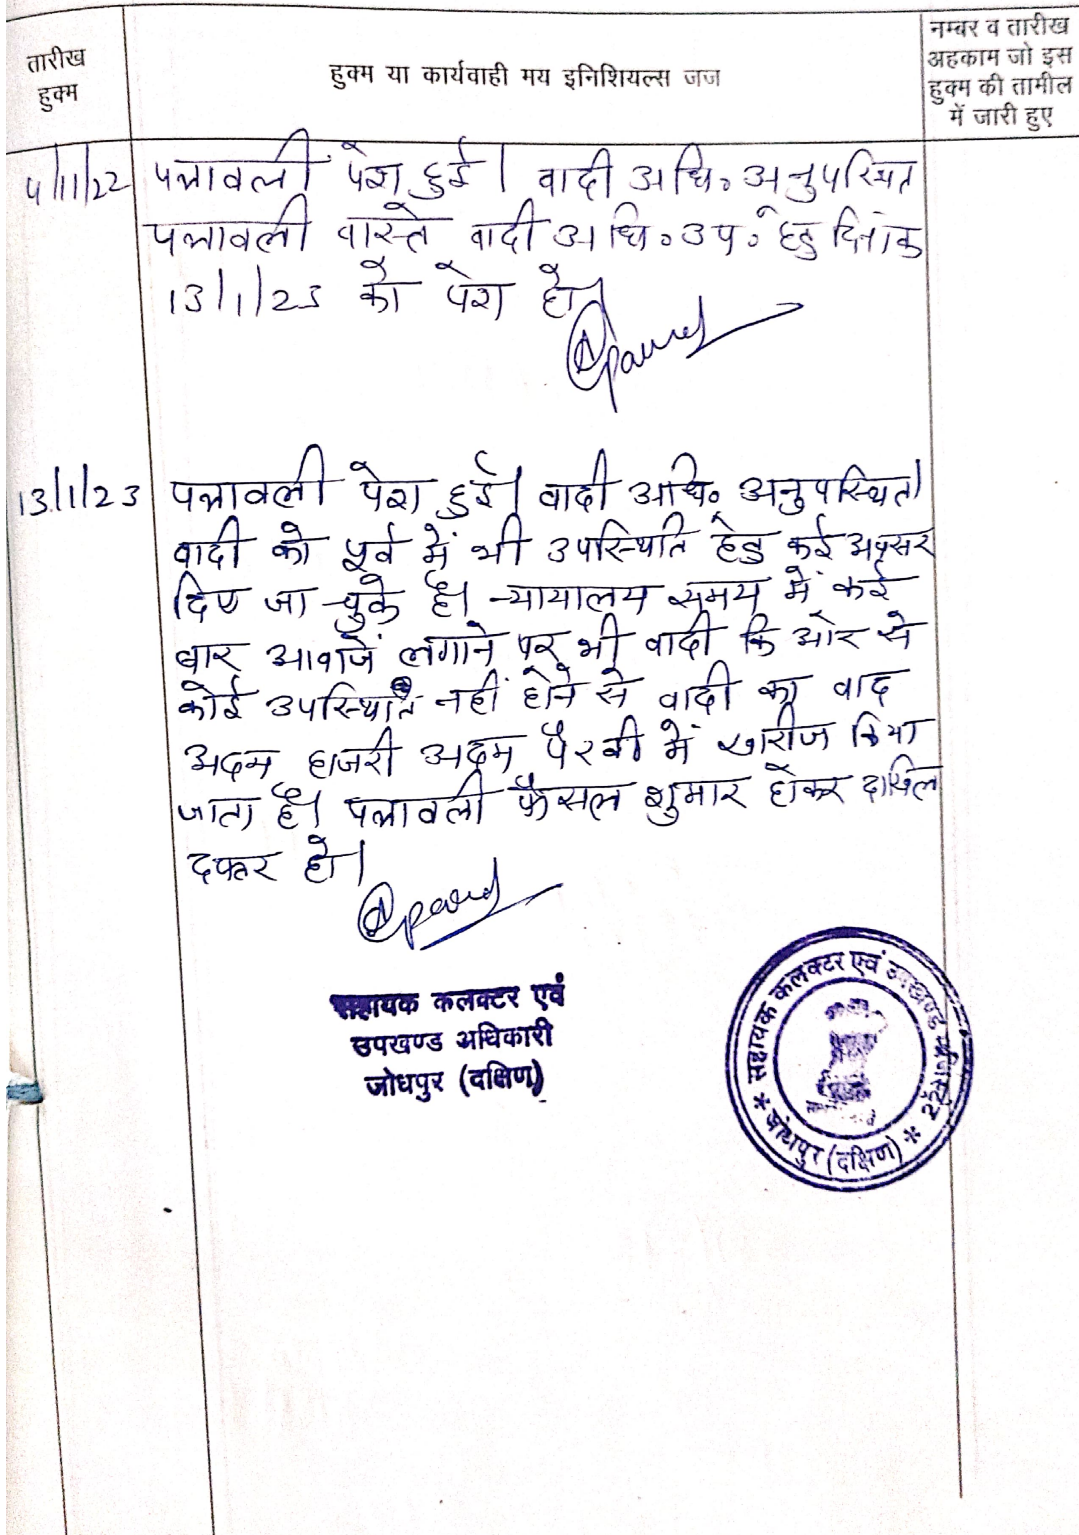 तारीख
हुक्म
हुक्म या कार्यवाही मय इनिशियल्स जज
नम्बर व तारीख
अहकाम जो इस
हुक्म की तामील
में जारी हुए
4/11/22 पत्रावली पेश हुई। वादी अधि॰ अनुपस्थित
पत्रावली वास्ते वादी अधि॰ उप॰ हेतु दिनांक
13/1/23 को पेश हो।
13/1/23 पत्रावली पेश हुई। वादी अधि॰ अनुपस्थित।
वादी को पूर्व में भी उपस्थिति हेतु कई अवसर
दिए जा चुके है। न्यायालय समय में कई
बार आवाजें लगाने पर भी वादी कि ओर से
कोई उपस्थित नहीं होने से वादी का वाद
अदम हाजरी अदम पैरवी में खारीज किया
जाता है। पत्रावली फैसल शुमार होकर दाखिल
दफ्तर हो।
सहायक कलक्टर एवं
उपखण्ड अधिकारी
जोधपुर (दक्षिण)
* सहायक कलक्टर एवं उपखण्ड मजिस्ट्रेट *
जोधपुर (दक्षिण)